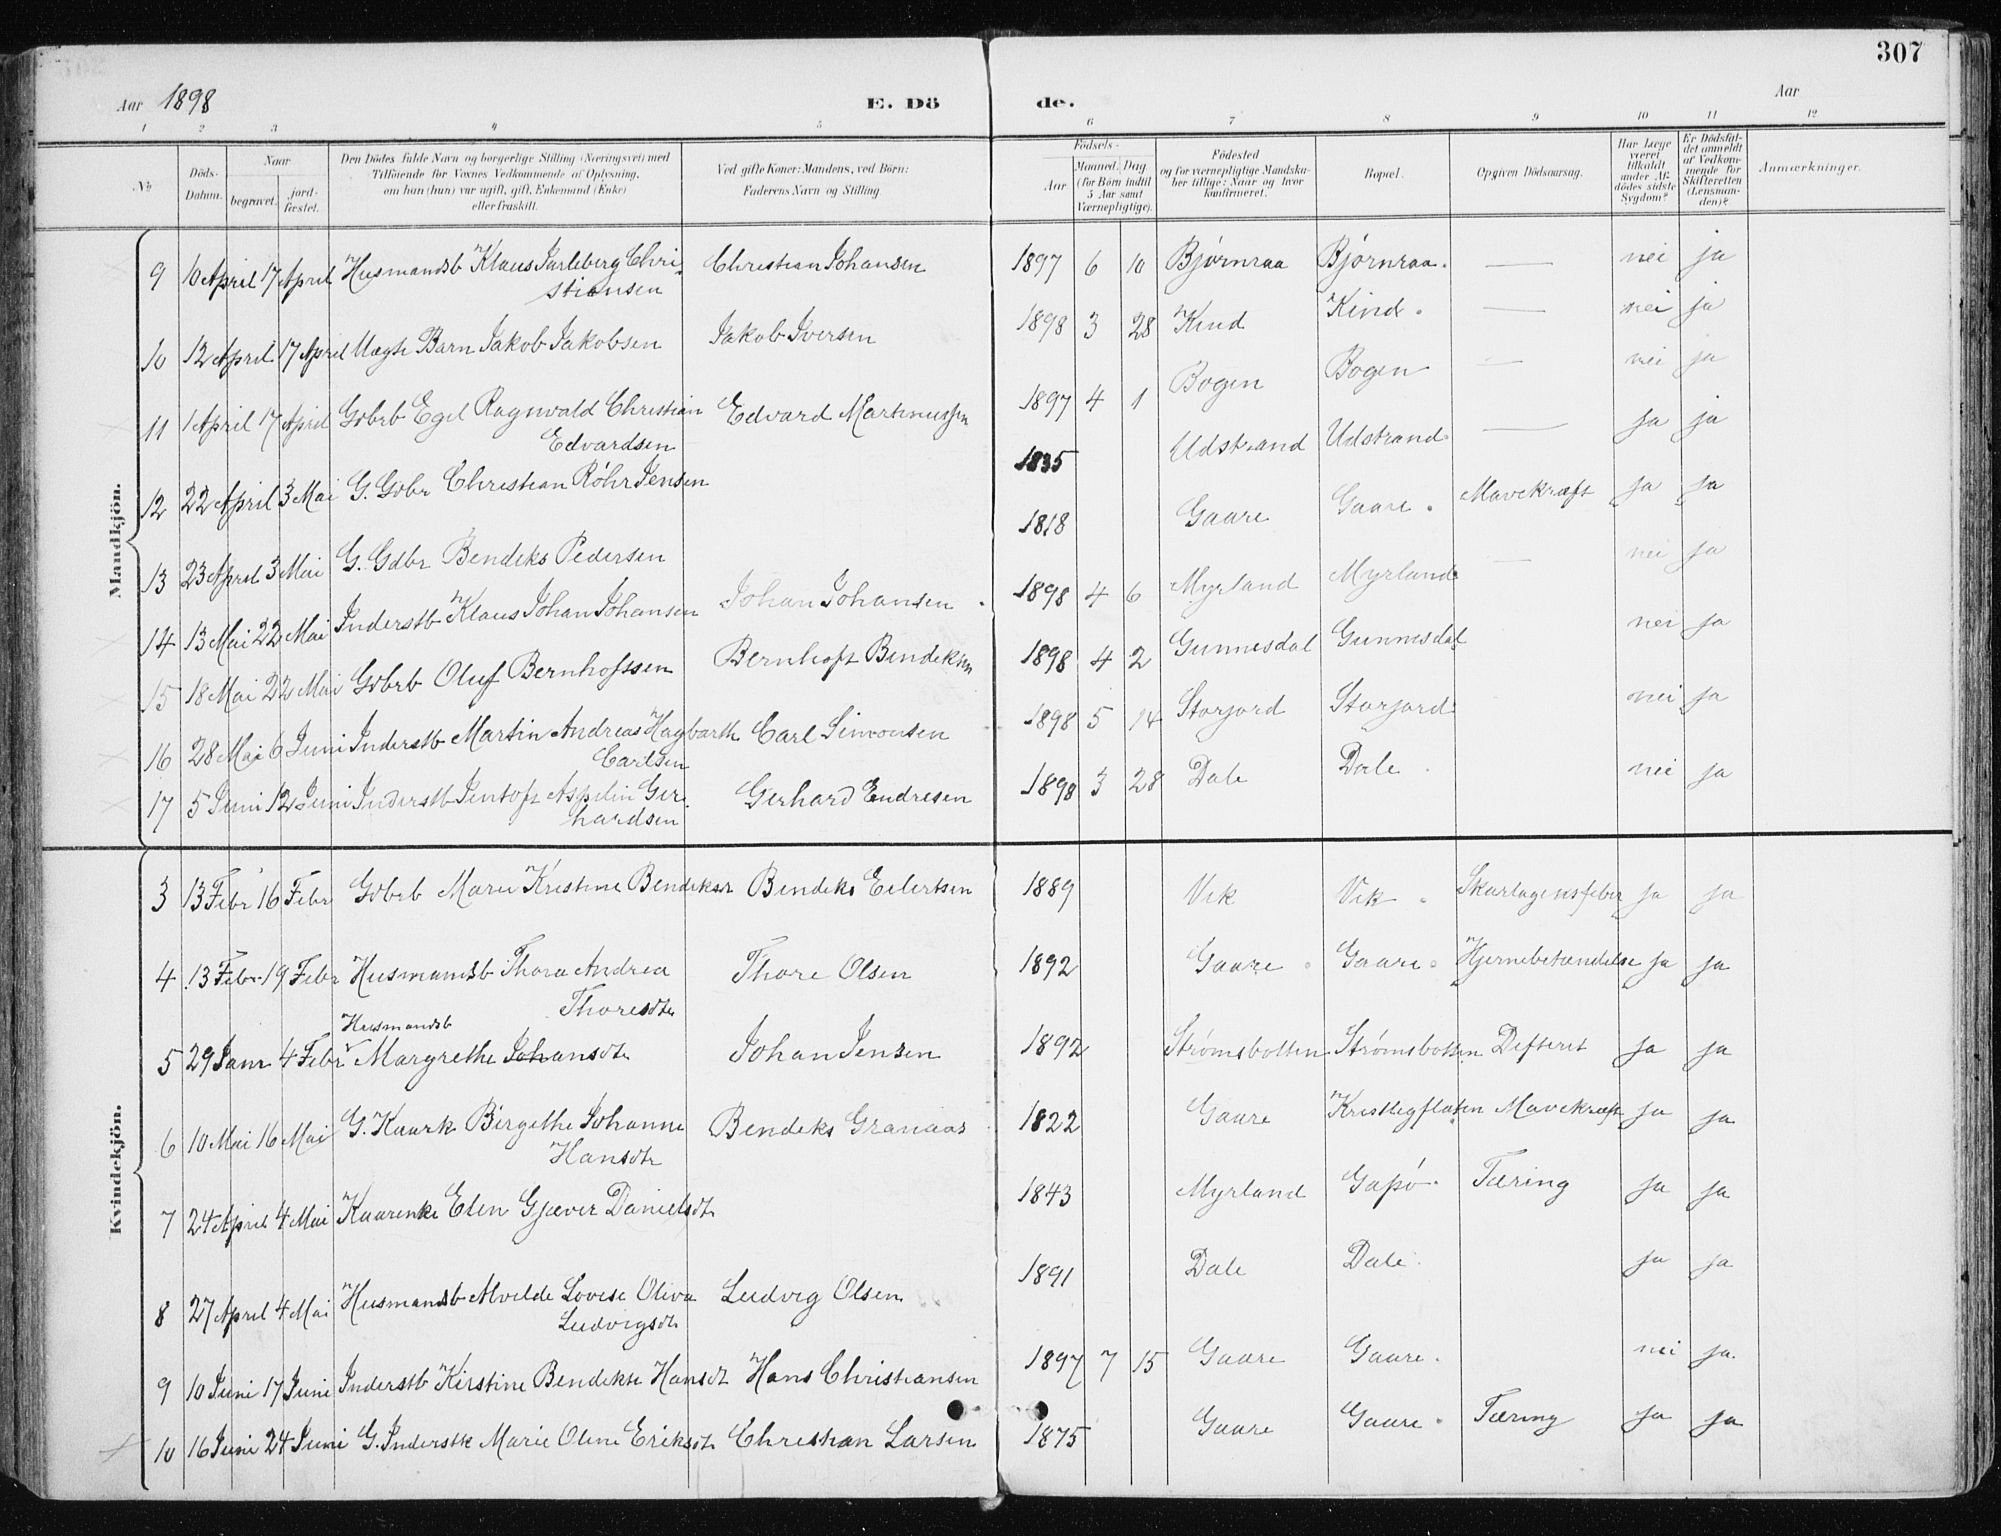 307
Aar 1898 E. Dö de. Aar
1 2 3 4 5 6 7 8 9 10 11 12
No Döds-Datum. Naar begravet. jordfæstet. Den Dödes fulde Navn og borgerlige Stilling (Næringsvei) med Tilföiende for Voxnes Vedkommende af Oplysning, om han (hun) var ugift, gift, Enkemand (Enke) eller fraskilt. Ved gifte Koner: Mandens, ved Börn: Faderens Navn og Stilling Födsels- Aar Maaned. Dag (for Börn indtil 5 Aar samt Værnepligtige). Födested og for værnepligtige Mandskaber tillige: Naar og hvor konfirmeret. Bopæl. Opgiven Dödsaarsag. Har Læge været tilkaldt under Afdödes sidste Sygdom? Er Dödsfaldet anmeldt af Vedkommende for Skifteretten (Lensmanden)? Anmærkninger.
Mandkjön.
9 10 April 17 April Husmandsb Klaus Jarleberg Christiansen Christian Johansen 1897 6 10 Bjørnraa Bjørnraa. — nei ja
10 12 April 17 April Uægte Barn Jakob Jakobsen Jakob Iversen 1898 3 28 Kind Kind. — nei ja
11 1 April 17 April Gbrb Egil Ragnvald Christian Edvardsen Edvard Martinussen 1897 4 1 Bogen Bogen — nei ja
12 22 April 3 Mai G. Gbr Christian Röhr Jensen 1835 Udstrand Udstrand — ja ja
13 23 April 3 Mai G. Gdbr Bendeks Pedersen 1818 Gaare Gaare. Mavekræft ja ja
14 13 Mai 22 Mai Inderstb Klaus Johan Johansen Johan Johansen 1898 4 6 Myrland Myrland — nei ja
15 18 Mai 22 Mai Gbrb Oluf Bernhoftsen Bernhoft Bendeksen 1898 4 2 Gunnesdal Gunnesdal nei ja
16 28 Mai 6 Juni Inderstb Martin Andreas Hagbarth Carlsen Carl Simonsen 1898 5 14 Storjord Storjord nei ja
17 5 Juni 12 Juni Inderstb Jentoft Aspelin Gerhardsen Gerhard Endresen 1898 3 28 Dale Dale nei ja
Kvindekjön.
3 13 Febr 16 Febr Gbrb Marie Kristine Bendeksdr Bendeks Eilertsen 1889 Vik Vik. Skarlagensfeber ja ja
4 13 Febr 19 Febr Husmandsb Thora Andrea Thoresdtr Thore Olsen 1892 Gaare Gaare. Hjernebetændelse ja ja
5 29 Janr 4 Febr Husmandsb Margrethe Johansdtr Johan Jensen 1892 Strømsbotten Strømsbotten Defterit ja ja
6 10 Mai 16 Mai G. Kaark Birgithe Johanne Hansdtr Bendeks Granaas 1822 Gaare Kristlegflaten Mavekræft ja ja
7 24 April 4 Mai Kaarenke Elen Gjæver Danielsdtr 1843 Myrland Gapö. Tæring ja ja
8 27 April 4 Mai Husmandsb Alvilde Lovise Oliva Ludvigsdtr Ludvig Olsen 1891 Dale Dale. ja ja
9 10 Juni 17 Juni Inderstb Kirstine Bendekte Hansdtr Hans Christiansen 1897 7 15 Gaare Gaare. nei ja.
10 16 Juni 24 Juni G. Inderstk Marie Oline Eriksdtr Christian Larsen 1875 Gaare Gaare. Tæring ja ja